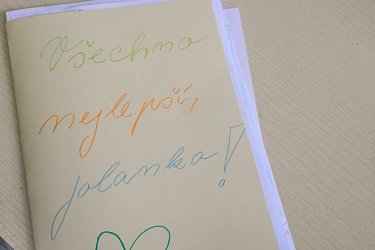 Všechno
nejlepší,
Jolanko!